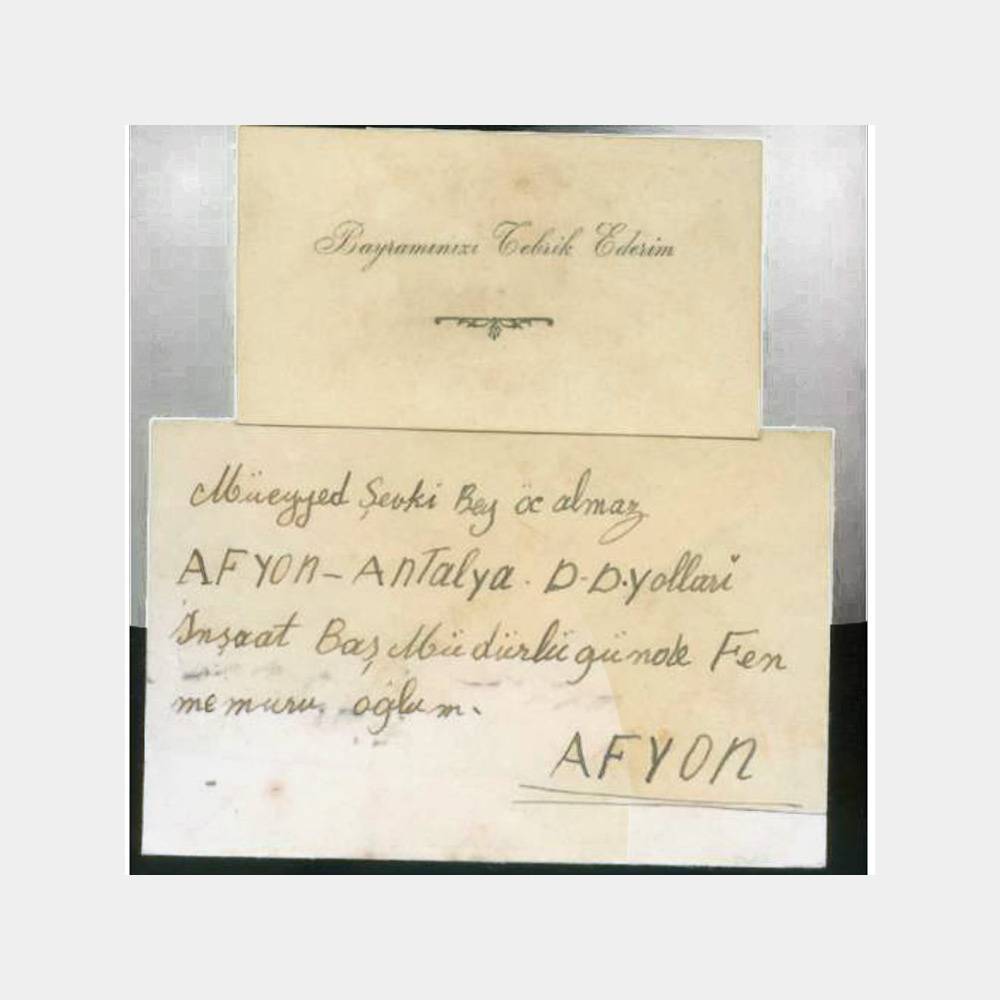 Bayramınızı Tebrik Ederim
Müeyyed Şevki Bey öc almaz
AFYON-Antalya. D.D.yolları
İnşaat Baş Müdürlüğünde Fen
memuru oğlum.
AFYON